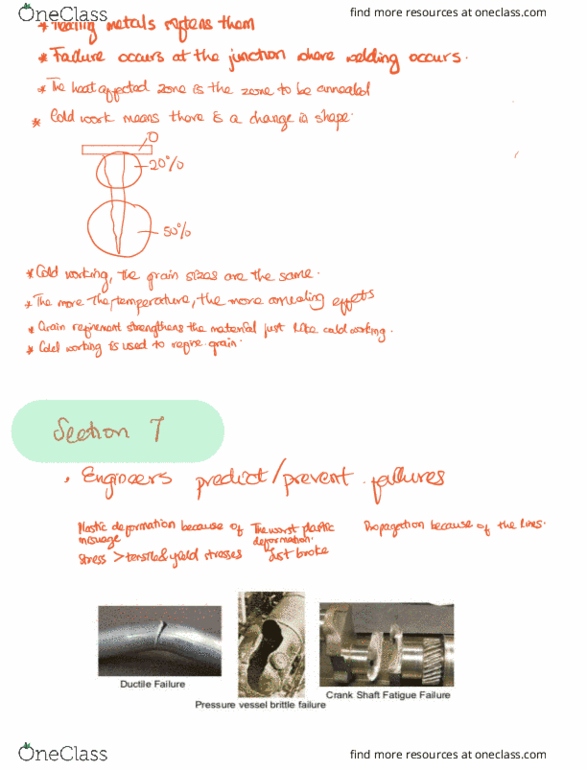 OneClass
find more resources at oneclass.com
* metals them
* Failure occurs at the junction where welding occurs.
* The heat affected zone is the zone to be annealed
* Cold work means there is a change in shape.
0
20%
50%
* Cold working, the grain sizes are the same.
* The more the temperature, the more annealing effects
* Grain refinement strengthens the material just like cold working.
* Cold working is used to refine grain.
Section 7
. Engineers predict/prevent failures
Plastic deformation because of
stress > tensile & yield stresses
The worst plastic
deformation.
Just broke
Propagation because of the lines.
Ductile Failure
Pressure vessel brittle failure
Crank Shaft Fatigue Failure
OneClass
find more resources at oneclass.com